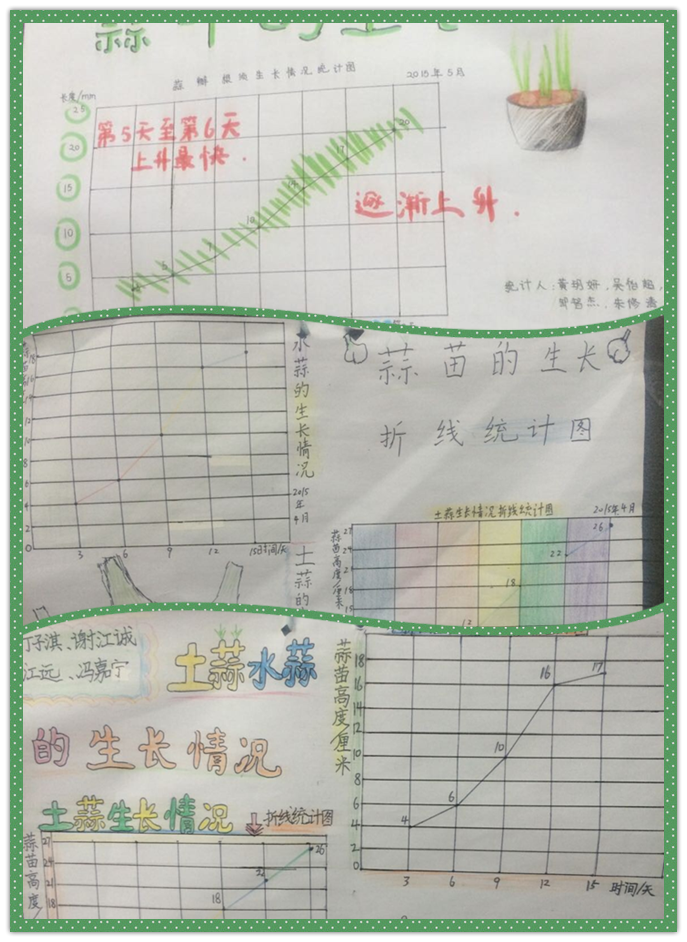 蒜瓣根须生长情况统计图
2015年5月
长度/mm
25
20
15
10
5
第5天至第6天
上升最快.
逐渐上升.
5
10
17
20
统计人:黄玥妍、吴怡超、
水蒜的生长情况
2015年4月
土蒜的
0
3
6
9
12
15
时间/天
蒜苗的生长
折线统计图
土蒜生长情况折线统计图
2015年4月
蒜苗高度/厘米
27
24
21
18
15
12
18
22
26
丁子淇、谢江诚
江远、冯嘉宁
土蒜水蒜
的生长情况
土蒜生长情况
折线统计图
蒜苗高度
27
24
21
18
18
22
26
蒜苗高度厘米
18
16
14
12
10
8
6
4
2
0
4
6
10
16
17
3
6
9
12
15
时间/天